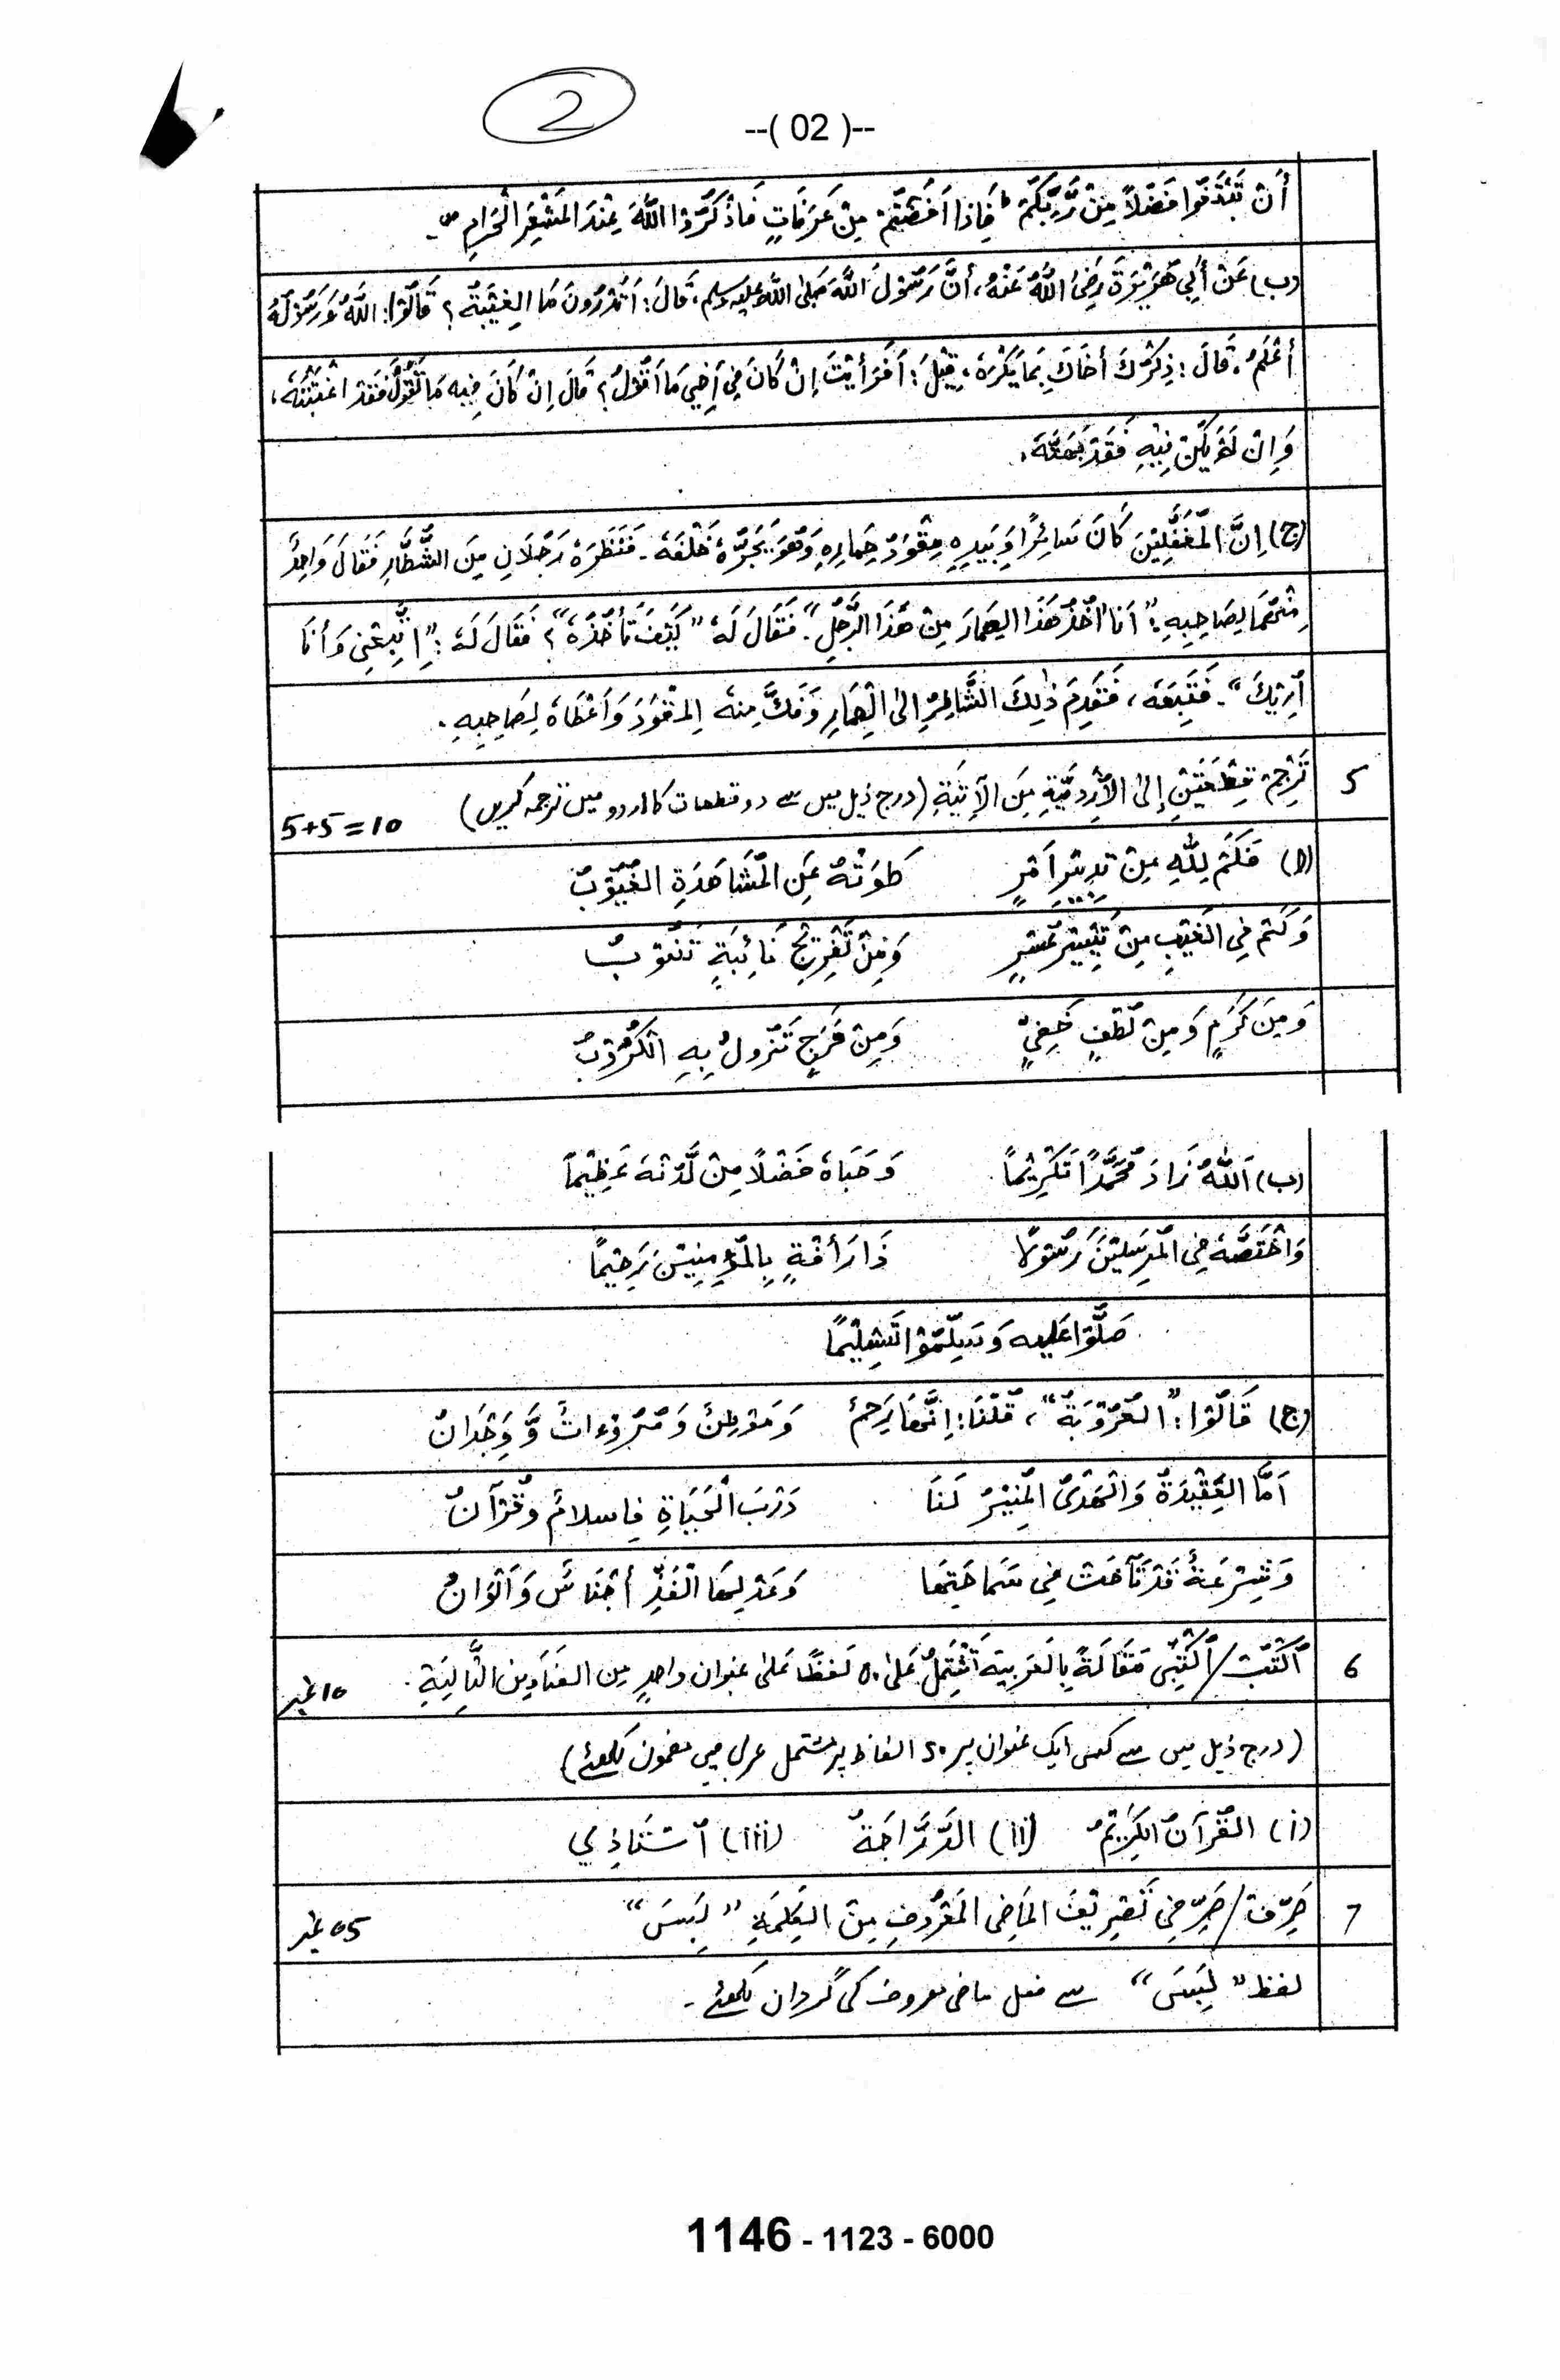 2
--( 02 )--
أَنْ تَبْتَغُوا فَضْلاً مِنْ رَّبِّكُمْ ط فَإِذَا أَفَضْتُمْ مِنْ عَرَفَاتٍ فَاذْكُرُوا اللّٰهَ عِنْدَ الْمَشْعَرِ الْحَرَامِ ص۔
(ب) عَنْ أَبِي هُرَيْرَةَ رَضِيَ اللّٰهُ عَنْهُ، أَنَّ رَسُوْلَ اللّٰهِ صَلَى اللّٰه عليه وسلم، قَالَ: أَتَدْرُونَ مَا الغِيْبَةُ؟ قَالُوْا: اَللّٰهُ وَرَسُوْلُهُ
أَعْلَمُ، قَالَ: ذِكْرُكَ أَخَاكَ بِمَا يَكْرَهُ، قِيْلَ: أَفَرَأَيْتَ إِنْ كَانَ فِيْ أَخِيْ مَا أَقُوْلُ؟ قَالَ إِنْ كَانَ فِيهِ مَا تَقُوْلُ فَقَدِ اغْتَبْتَهُ،
وَإِنْ لَمْ يَكُنْ فِيْهِ فَقَدْ بَهَتَّهُ.
(ج) إِنَّ الْمُغَفَّلِيْنَ كَانَ سَائِرًا وَبِيَدِهِ مِقْوَدُ حِمَارِهِ وَهُوَ يَجُرُّهُ خَلْفَهُ۔ فَنَظَرَهُ رَجُلَانِ مِنَ الشُّطَّارِ فَقَالَ وَاحِدٌ
مِنْهُمَا لِصَاحِبِهِ: "أَنَا آخُذُ هَذَا الحِمَارَ مِنْ هَذَا الرَّجُلِ"۔ فَقَالَ لَهُ "كَيْفَ تَأْخُذُهُ"؟ فَقَالَ لَهُ: "اِتَّبِعْنِي وَأَنَا
أُرِيْكَ"۔ فَتَبِعَهُ، فَتَقَدَّمَ ذٰلِكَ الشَّاطِرُ إِلَى الْحِمَارِ وَفَكَّ مِنْهُ الْمِقْوَدَ وَأَعْطَاهُ لِصَاحِبِهِ.
5 تَرْجِمْ قِطْعَتَيْنِ إِلَى الأُرْدِيَّةِ مِنَ الآتِيَةِ (درج ذیل میں سے دو قطعات کا اردو میں ترجمہ کریں) 5+5=10
(ا) فَكَمْ لِلّٰهِ مِنْ تَدْبِيْرِ أَمْرٍ طَوَتْهُ عَنِ الْمُشَاهَدَةِ الْغُيُوْبُ
وَكَمْ فِي الْغَيْبِ مِنْ تَيْسِيْرِ عُسْرٍ وَمِنْ تَفْرِيْجِ نَائِبَةٍ تَنُوْبُ
وَمِنْ كَرَمٍ وَمِنْ لُطْفٍ خَفِيٍّ وَمِنْ فَرَجٍ تَزُولُ بِهِ الْكُرُوْبُ
(ب) اَللّٰهُ زَادَ مُحَمَّدًا تَكْرِيْمًا وَحَبَاهُ فَضْلًا مِنْ لَّدُنْهُ عَظِيْمًا
وَاخْتَصَّهُ فِي الْمُرْسَلِيْنَ رَسُوْلًا ذَا رَأْفَةٍ بِالْمُؤْمِنِيْنَ رَحِيْمًا
صَلُّوْا عَلَيه وَسَلِّمُوْا تَسْلِيْمًا
(ج) قَالُوْا: "العُرُوْبَةُ"، قُلْنَا: إِنَّهَا رَحِمٌ وَمَوْطِنٌ وَمُرُوْءَاتٌ وَّوِجْدَانٌ
أَمَّا الْعَقِيْدَةُ وَالْهُدَى الْمُنِيْرُ لَنَا دَرْبَ الْحَيَاةِ فَإسلامٌ وقُرْآنٌ
وَشِرْعَةٌ قَدْ تَآخَتْ فِيْ سَمَاحَتِهَا وَعَدْلِهَا الْفَذِّ أَجْنَاسٌ وَأَلْوَانٌ
6 اُكْتُبْ/اُكْتُبِيْ مَقَالَةً بِالعَرَبِيَةِ تَشْتَمِلُ عَلىٰ ۵۰ لَفظًا عَلىٰ عنوان واحدٍ من العَنَاوِين التَّالِيَةِ۔ 10 نمبر
(درج ذیل میں سے کسی ایک عنوان پر 50 الفاظ پر مشتمل عربی میں مضمون لکھئے)
(i) القُرْآنُ الْكَرِيْمُ (ii) الدَّرَّاجَةُ (iii) اُسْتَاذِي
7 صَرِّفْ/صَرِّفِيْ تَصْرِيْفَ الْمَاضِي الْمَعْرُوفِ مِنَ الكَلِمَةِ "لَبِسَ" 05 نمبر
لفظ "لَبِسَ" سے فعل ماضی معروف کی گردان لکھئے۔
1146 - 1123 - 6000